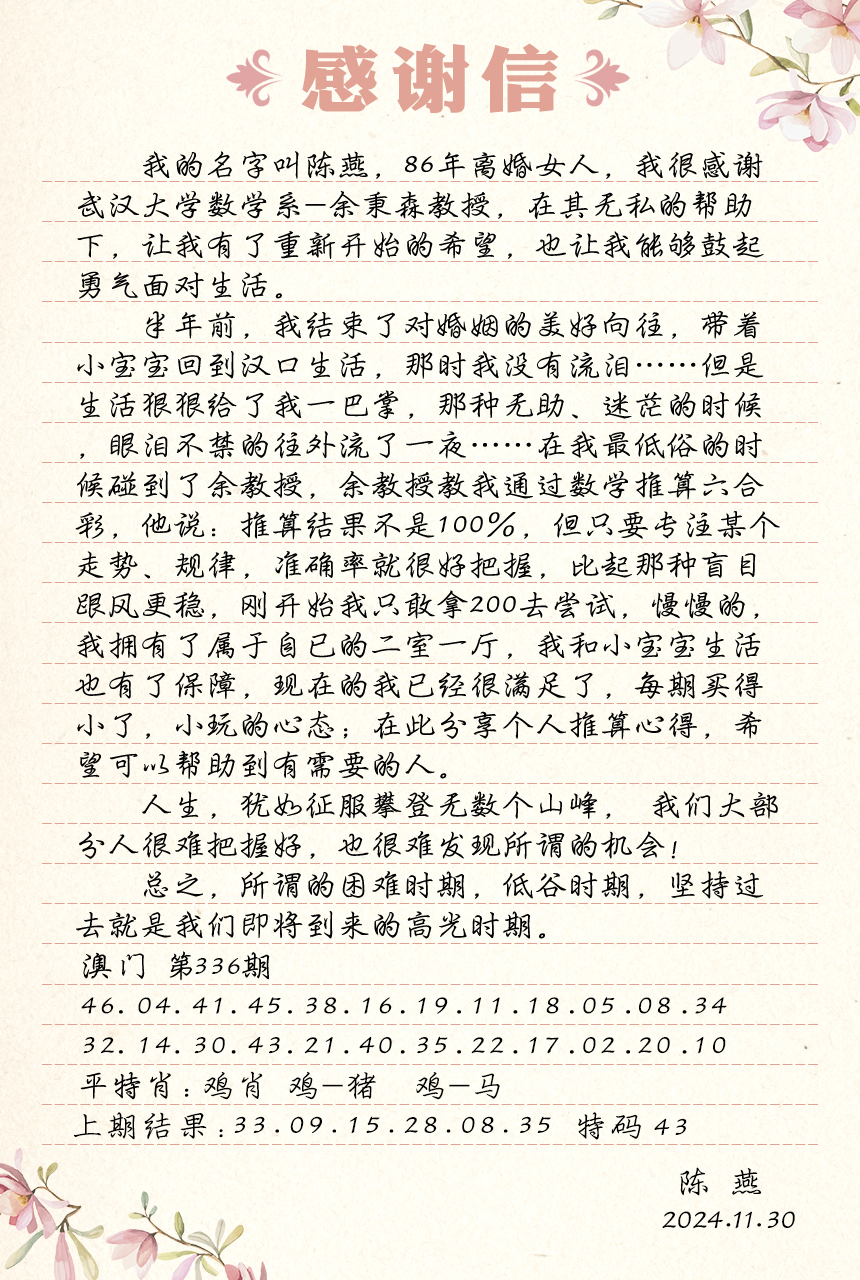 感谢信
我的名字叫陈燕，86年离婚女人，我很感谢
武汉大学数学系—余秉森教授，在其无私的帮助
下，让我有了重新开始的希望，也让我能够鼓起
勇气面对生活。
半年前，我结束了对婚姻的美好向往，带着
小宝宝回到汉口生活，那时我没有流泪……但是
生活狠狠给了我一巴掌，那种无助、迷茫的时候
，眼泪不禁的往外流了一夜……在我最低俗的时
候碰到了余教授，余教授教我通过数学推算六合
彩，他说：推算结果不是100%，但只要专注某个
走势、规律，准确率就很好把握，比起那种盲目
跟风更稳，刚开始我只敢拿200去尝试，慢慢的，
我拥有了属于自已的二室一厅，我和小宝宝生活
也有了保障，现在的我已经很满足了，每期买得
小了，小玩的心态；在此分享个人推算心得，希
望可以帮助到有需要的人。
人生，犹如征服攀登无数个山峰， 我们大部
分人很难把握好，也很难发现所谓的机会！
总之，所谓的困难时期，低谷时期，坚持过
去就是我们即将到来的高光时期。
澳门 第336期
46.04.41.45.38.16.19.11.18.05.08.34
32.14.30.43.21.40.35.22.17.02.20.10
平特肖：鸡肖 鸡—猪 鸡—马
上期结果：33.09.15.28.08.35 特码 43
陈 燕
2024.11.30